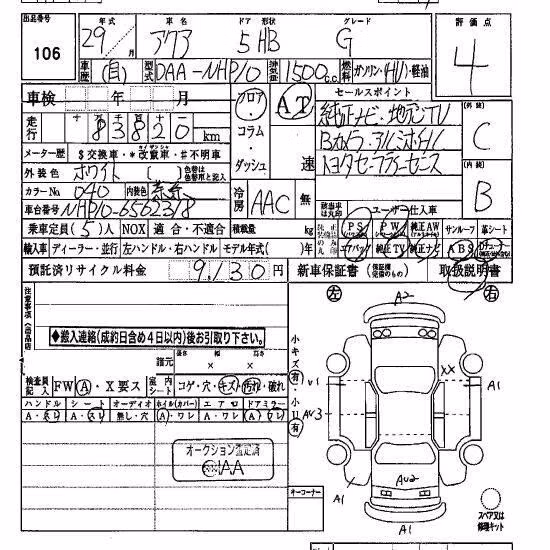 出品番号 年式 車名 ドア 形状 グレード 評価点
106 29/ 月 アクア 5 HB G 4
車歴 (自) 型式 DAA-NHP10 排気量 1500 c.c. 燃料 ガソリン・(HU)・軽油
車検 年 月 フロア AT セールスポイント
走行 83820 km コラム・ 純正ナビ・地デジTV 外装 C
Bカメラ・アルミホイル
メーター歴 $交換車・*改竄車・#不明車 ダッシュ 速 トヨタセーフティーセンス
外装色 ホワイト ( ) 色替は色替前を記入 内装 B
カラーNo 040 内装色 冷房 AAC 無 該当車は丸印 ユーザー仕入車
車台番号 NHP10-6562318
乗車定員 (5)人 NOX 適合・不適合 積載量 kg PS PW 純正AW サンルーフ 革シート
輸入車 ディーラー・並行 左ハンドル・右ハンドル モデル年式( )年 エアバック 純正TV 純正ナビ ABS
預託済リサイクル料金 9,130 円 新車保証書 取扱説明書
左 右
注意事項
◆搬入連絡(成約日含め4日以内)後お引取り下さい。
諸元 長さ × 幅 × 高さ
検査員記入 FW A・X 要ス 室内シート コゲ・穴・キズ・汚れ・破れ
ハンドル シート オーディオ ホイル(カバー) エアロ ドアミラー
A・スレ A・スレ 無し・穴 A・ワレ A・ワレ A・ワレ
小キズ 有・小U 有
オークション鑑定済
IAA
キーコーナー
A2
XX
A1
U1
AU3
AU2
A1
A1
A1
スペア又は
修理キット